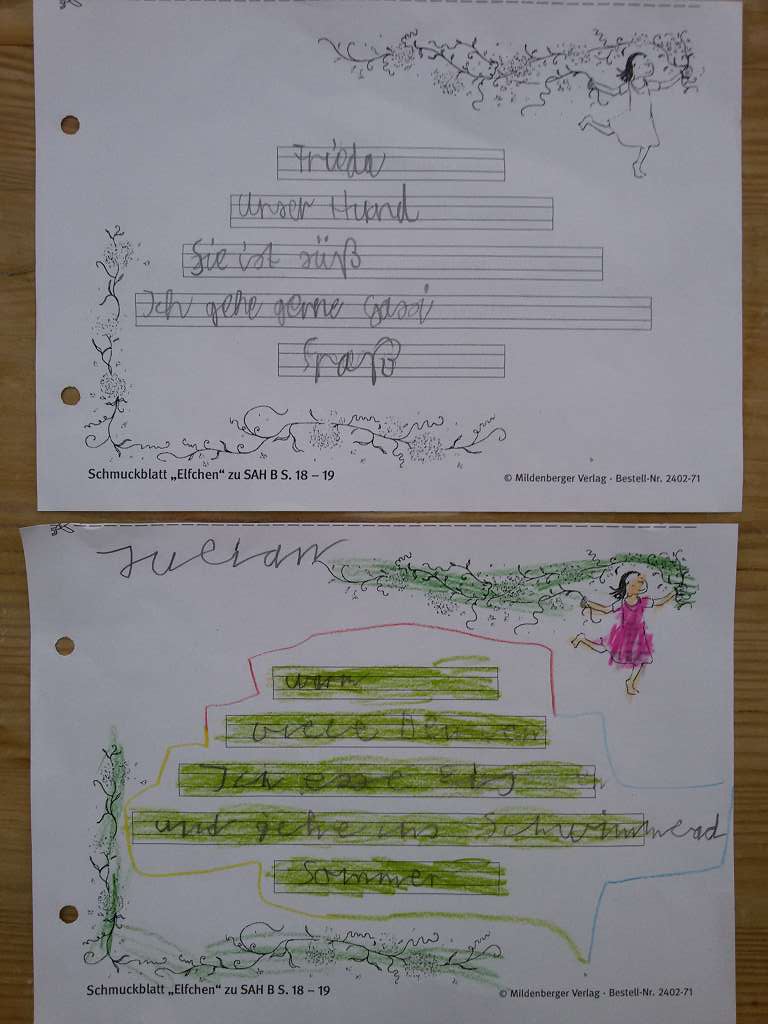 Frieda
unser Hund
Sie ist süß
Ich gehe gerne Gassi
Spaß
Schmuckblatt „Elfchen“ zu SAH B S. 18 – 19
© Mildenberger Verlag · Bestell-Nr. 2402-71
Julian
warm
viele
Ich esse Eis
und gehe ins Schwimmbad
Sommer
Schmuckblatt „Elfchen“ zu SAH B S. 18 – 19
© Mildenberger Verlag · Bestell-Nr. 2402-71